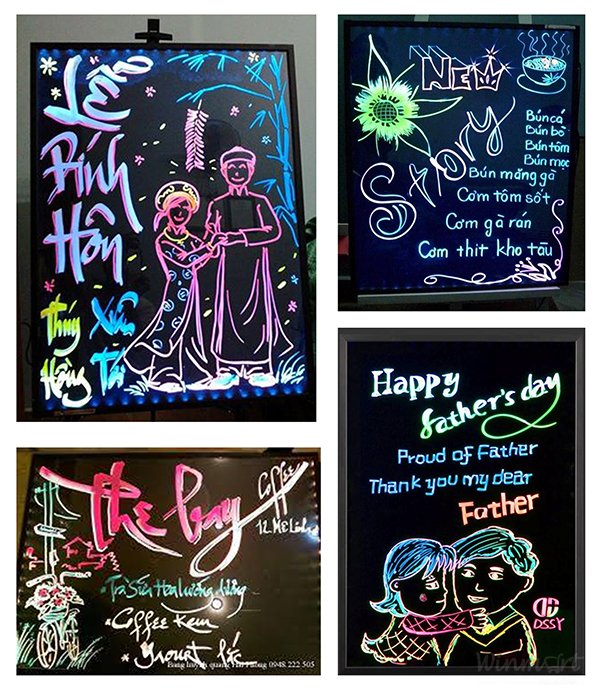 Lễ
Đính
Hôn
Thúy
Hồng Tài
NEW
Story
Bún cá
Bún bò
Bún tôm
Bún mọc
Bún măng gà
Cơm tôm sốt
Cơm gà rán
Cơm thit kho tàu
the bay
Coffee
12. Mê Linh
Trà Sữa
Coffee Kem
Yaourt
Bang huỳnh quang Hai Phong 0948 222 505
Happy
father's day
Proud of Father
Thank you my dear
Father
DSSY
Winmart